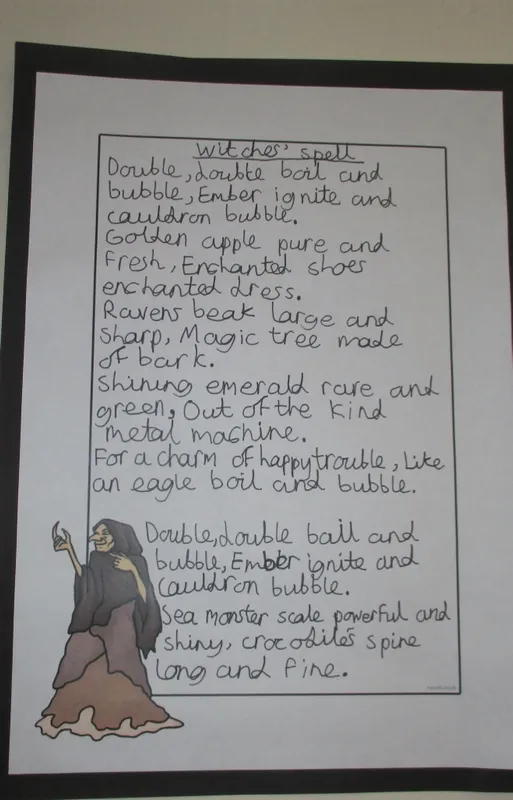 Witches' spell
Double, double boil and
bubble, Ember ignite and
cauldron bubble.
Golden apple pure and
Fresh, Enchanted shoes
enchanted dress.
Ravens beak large and
Sharp, Magic tree made
of bark.
Shining emerald rare and
green, Out of the kind
metal machine.
For a charm of happy trouble, Like
an eagle boil and bubble.
Double, double bail and
bubble, Ember ignite and
cauldron bubble.
Sea monster scale powerful and
shiny, crocodile's spine
long and fine.